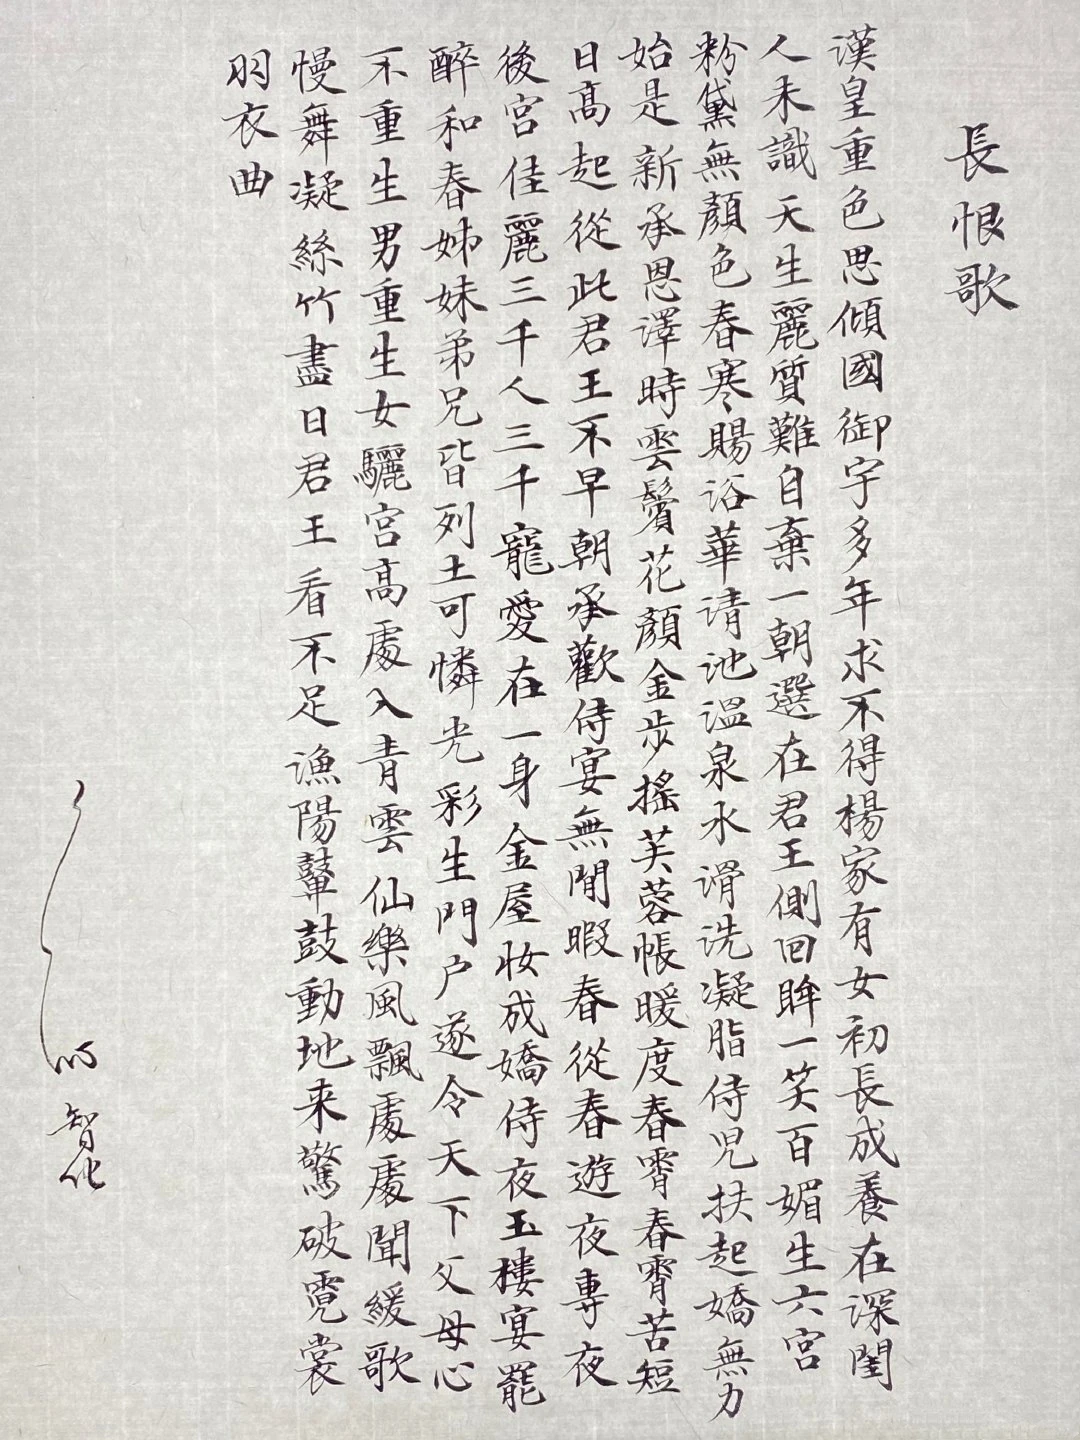 長恨歌
漢皇重色思傾國御宇多年求不得楊家有女初長成養在深閨
人未識天生麗質難自棄一朝選在君王側回眸一笑百媚生六宮
粉黛無顏色春寒賜浴華清池溫泉水滑洗凝脂侍児扶起嬌無力
始是新承恩澤時雲鬢花顏金步搖芙蓉帳暖度春霄春霄苦短
日高起從此君王不早朝承歡侍宴無閒暇春從春遊夜專夜
後宮佳麗三千人三千寵愛在一身金屋妝成嬌侍夜玉樓宴罷
醉和春姊妹弟兄皆列土可憐光彩生門户遂令天下父母心
不重生男重生女驪宮高處入青雲仙樂風飄處處聞緩歌
慢舞凝絲竹盡日君王看不足漁陽鼙鼓動地来驚破霓裳
羽衣曲
智化